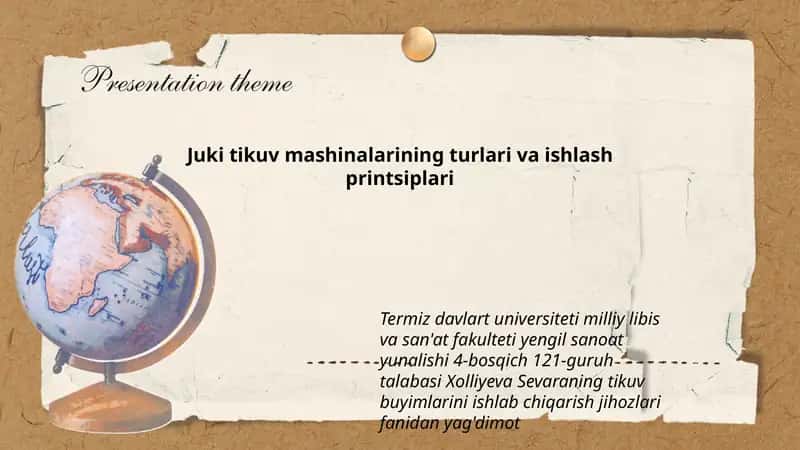 Presentation theme
Juki tikuv mashinalarining turlari va ishlash
printsiplari
Termiz davlart universiteti milliy libis
va san'at fakulteti yengil sanoat
yunalishi 4-bosqich 121-guruh
talabasi Xolliyeva Sevaraning tikuv
buyimlarini ishlab chiqarish jihozlari
fanidan yag'dimot